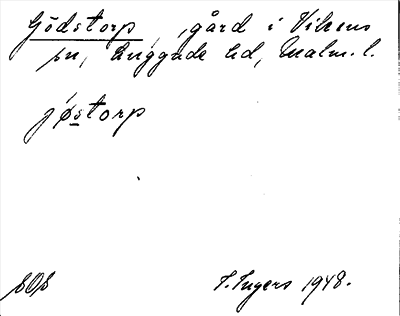 Gödstorp, gård i Vilsens
sn, Anggade hd, Malm. l.
jøstorp
SOS
I. Ingers 1948.